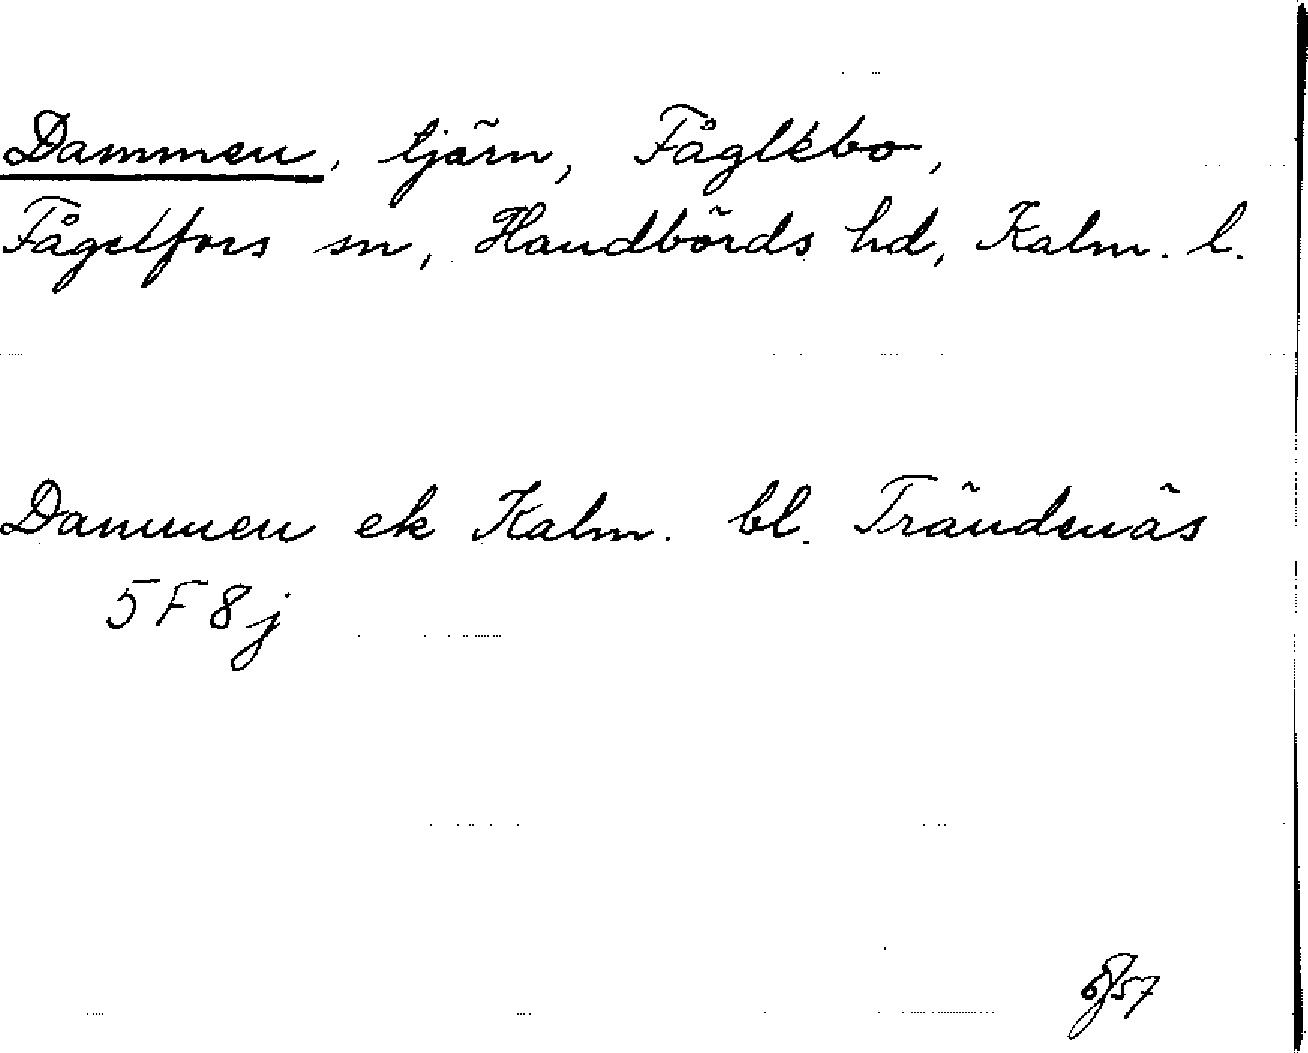 Dammen, tjärn, Fåglebo,
Fågelfors sn, Handbörds hd, Kalm. l.
Dammen ek Kalm. bl. Trändenäs
5F8j